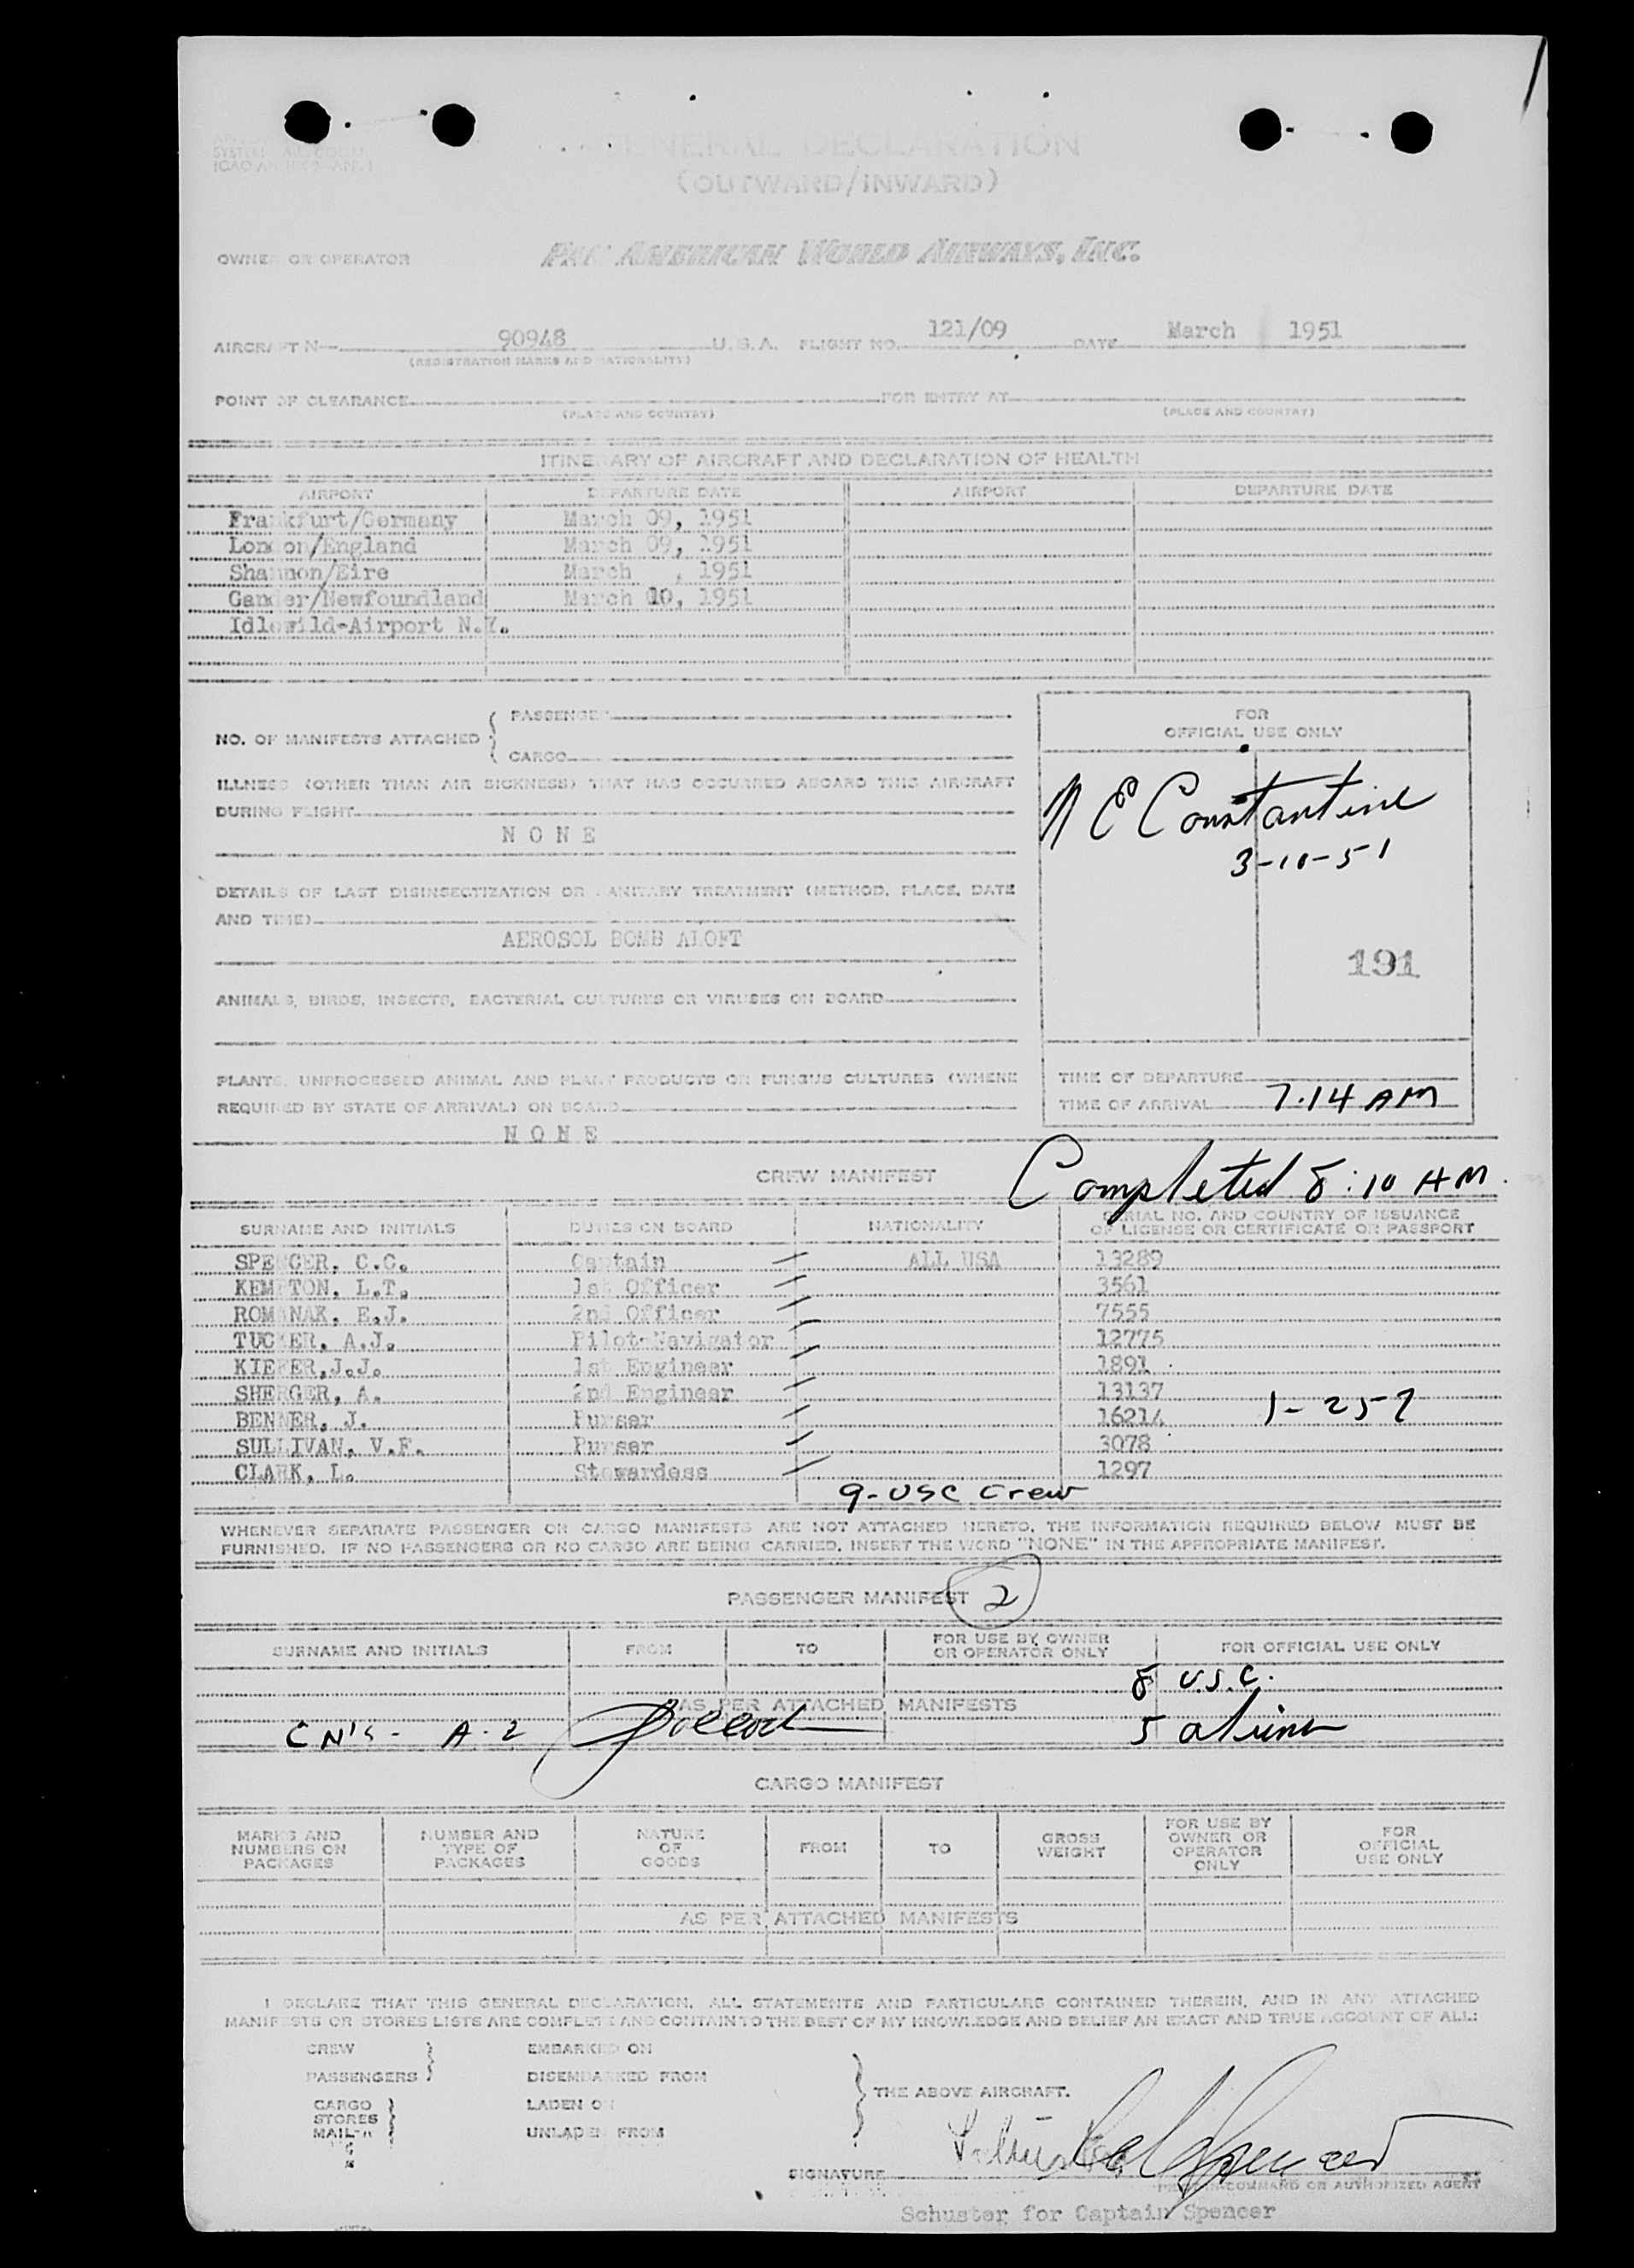 GENERAL DECLARATION
(OUTWARD/INWARD)
OWNER OR OPERATOR PAN AMERICAN WORLD AIRWAYS, INC.
AIRCRAFT N 90948 U.S.A. FLIGHT NO. 121/09 DATE March 1951
(REGISTRATION MARKS AND NATIONALITY)
POINT OF CLEARANCE FOR ENTRY AT
(PLACE AND COUNTRY) (PLACE AND COUNTRY)
ITINERARY OF AIRCRAFT AND DECLARATION OF HEALTH
AIRPORT DEPARTURE DATE AIRPORT DEPARTURE DATE
Frankfurt/Germany March 09, 1951
London/England March 09, 1951
Shannon/Eire March , 1951
Gander/Newfoundland March 10, 1951
Idlewild-Airport N.Y.
NO. OF MANIFESTS ATTACHED { PASSENGER
CARGO
FOR
OFFICIAL USE ONLY
ILLNESS (OTHER THAN AIR SICKNESS) THAT HAS OCCURRED ABOARD THIS AIRCRAFT
DURING FLIGHT
NONE
N E Constantine
3-10-51
DETAILS OF LAST DISINSECTIZATION OR SANITARY TREATMENT (METHOD, PLACE, DATE
AND TIME)
AEROSOL BOMB ALOFT
191
ANIMALS, BIRDS, INSECTS, BACTERIAL CULTURES OR VIRUSES ON BOARD
PLANTS, UNPROCESSED ANIMAL AND PLANT PRODUCTS OR FUNGUS CULTURES (WHERE
REQUIRED BY STATE OF ARRIVAL) ON BOARD
NONE
TIME OF DEPARTURE
TIME OF ARRIVAL 7.14 AM
CREW MANIFEST Completed 8:10 AM.
SURNAME AND INITIALS DUTIES ON BOARD NATIONALITY SERIAL NO. AND COUNTRY OF ISSUANCE
OF LICENSE OR CERTIFICATE OR PASSPORT
SPENCER, C.C. Captain ALL USA 13289
KEMPTON, L.T. 1st Officer 3561
ROMANAK, E.J. 2nd Officer 7555
TUCKER, A.J. Pilot-Navigator 12775
KIEFER, J.J. 1st Engineer 1891
SHERGER, A. 2nd Engineer 13137
BENNER, J. Purser 16214 1-257
SULLIVAN, V.F. Purser 3078
CLARK, L. Stewardess 1297
9-USC Crew
WHENEVER SEPARATE PASSENGER OR CARGO MANIFESTS ARE NOT ATTACHED HERETO, THE INFORMATION REQUIRED BELOW MUST BE
FURNISHED. IF NO PASSENGERS OR NO CARGO ARE BEING CARRIED, INSERT THE WORD "NONE" IN THE APPROPRIATE MANIFEST.
PASSENGER MANIFEST 2
SURNAME AND INITIALS FROM TO FOR USE BY OWNER
OR OPERATOR ONLY FOR OFFICIAL USE ONLY
8 U.S.C.
AS PER ATTACHED MANIFESTS
CN's - A-2 5 aliens
CARGO MANIFEST
MARKS AND
NUMBERS ON
PACKAGES NUMBER AND
TYPE OF
PACKAGES NATURE
OF
GOODS FROM TO GROSS
WEIGHT FOR USE BY
OWNER OR
OPERATOR
ONLY FOR
OFFICIAL
USE ONLY
AS PER ATTACHED MANIFESTS
I DECLARE THAT THIS GENERAL DECLARATION, ALL STATEMENTS AND PARTICULARS CONTAINED THEREIN, AND IN ANY ATTACHED
MANIFESTS OR STORES LISTS ARE COMPLETE AND CONTAIN TO THE BEST OF MY KNOWLEDGE AND BELIEF AN EXACT AND TRUE ACCOUNT OF ALL:
CREW EMBARKED ON
PASSENGERS DISEMBARKED FROM
THE ABOVE AIRCRAFT.
CARGO LADEN ON
STORES
MAIL UNLADEN FROM
SIGNATURE Spencer
PILOT IN COMMAND OR AUTHORIZED AGENT
Schuster for Captain Spencer